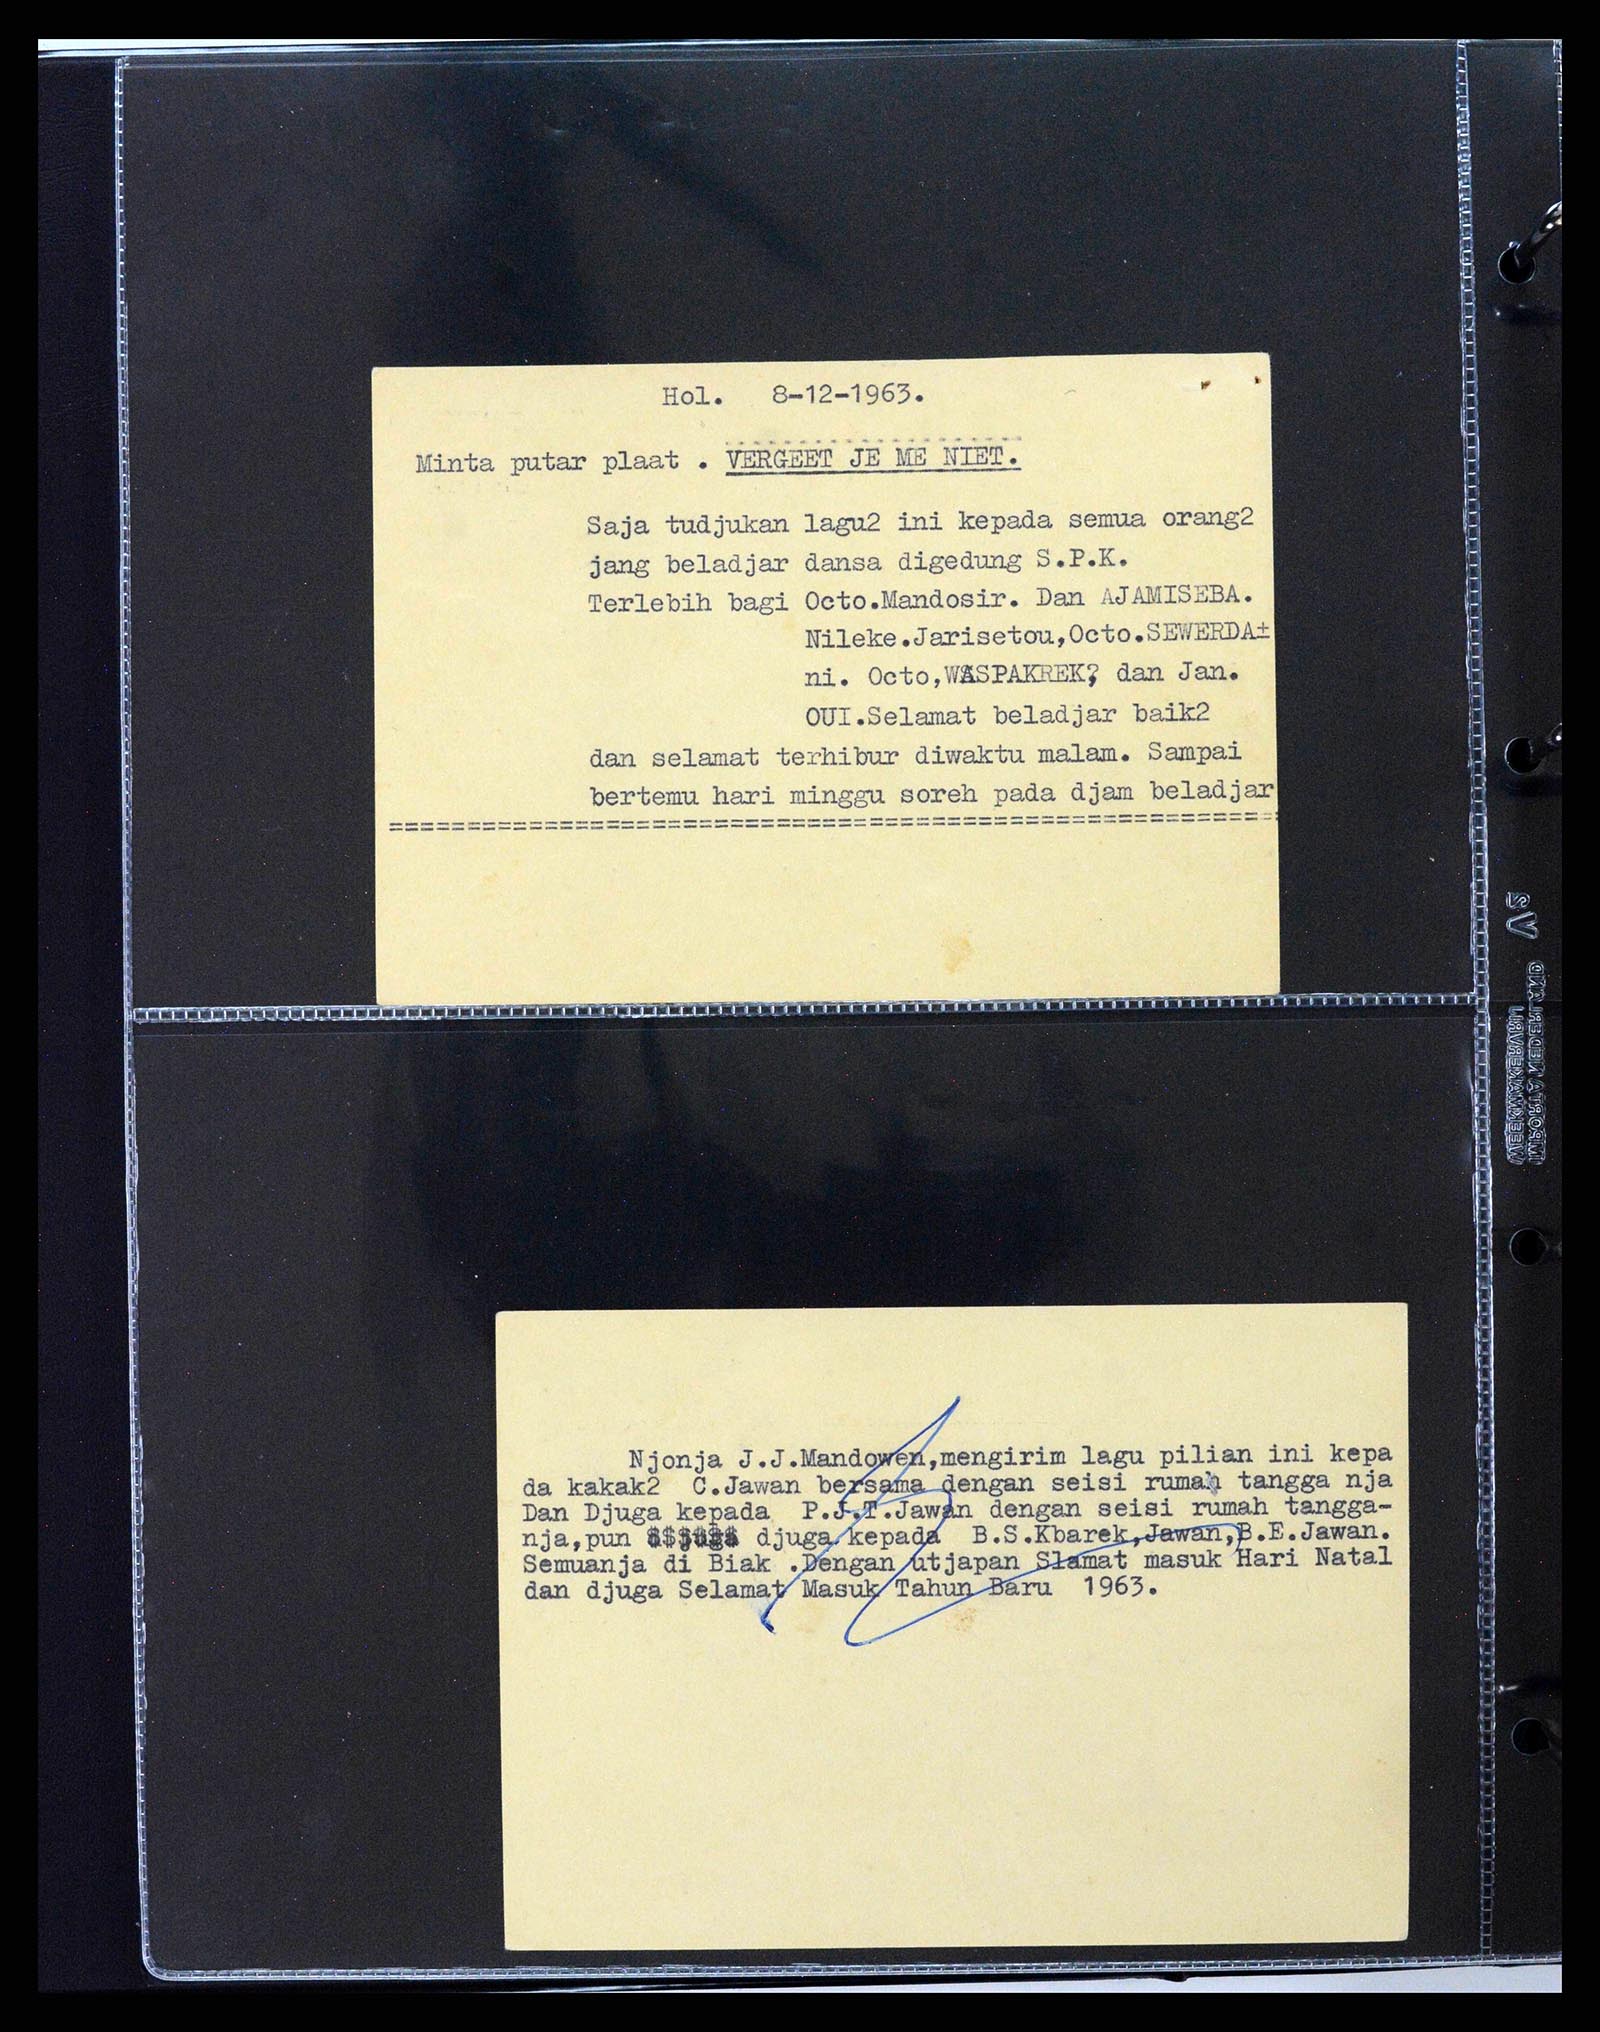 Hol.   8-12-1963.
Minta putar plaat . VERGEET JE ME NIET.
Saja tudjukan lagu2 ini kepada semua orang2
jang beladjar dansa digedung S.P.K.
Terlebih bagi Octo.Mandosir. Dan AJAMISEBA.
Nileke.Jarisetou,Octo.SEWERDA±
ni. Octo,WASPAKREK? dan Jan.
OUI.Selamat beladjar baik2
dan selamat terhibur diwaktu malam. Sampai
bertemu hari minggu soreh pada djam beladjar
==========================================================
Njonja J.J.Mandowen,mengirim lagu pilian ini kepa
da kakak2  C.Jawan bersama dengan seisi rumah tangga nja
Dan Djuga kepada  P.J.T.Jawan dengan seisi rumah tangga-
nja,pun djuga kepada  B.S.Kbarek,Jawan,B.E.Jawan.
Semuanja di Biak .Dengan utjapan Slamat masuk Hari Natal
dan djuga Selamat Masuk Tahun Baru  1963.
SV
IMPORTA NEDERLAND
WEEKMAKERVRIJ